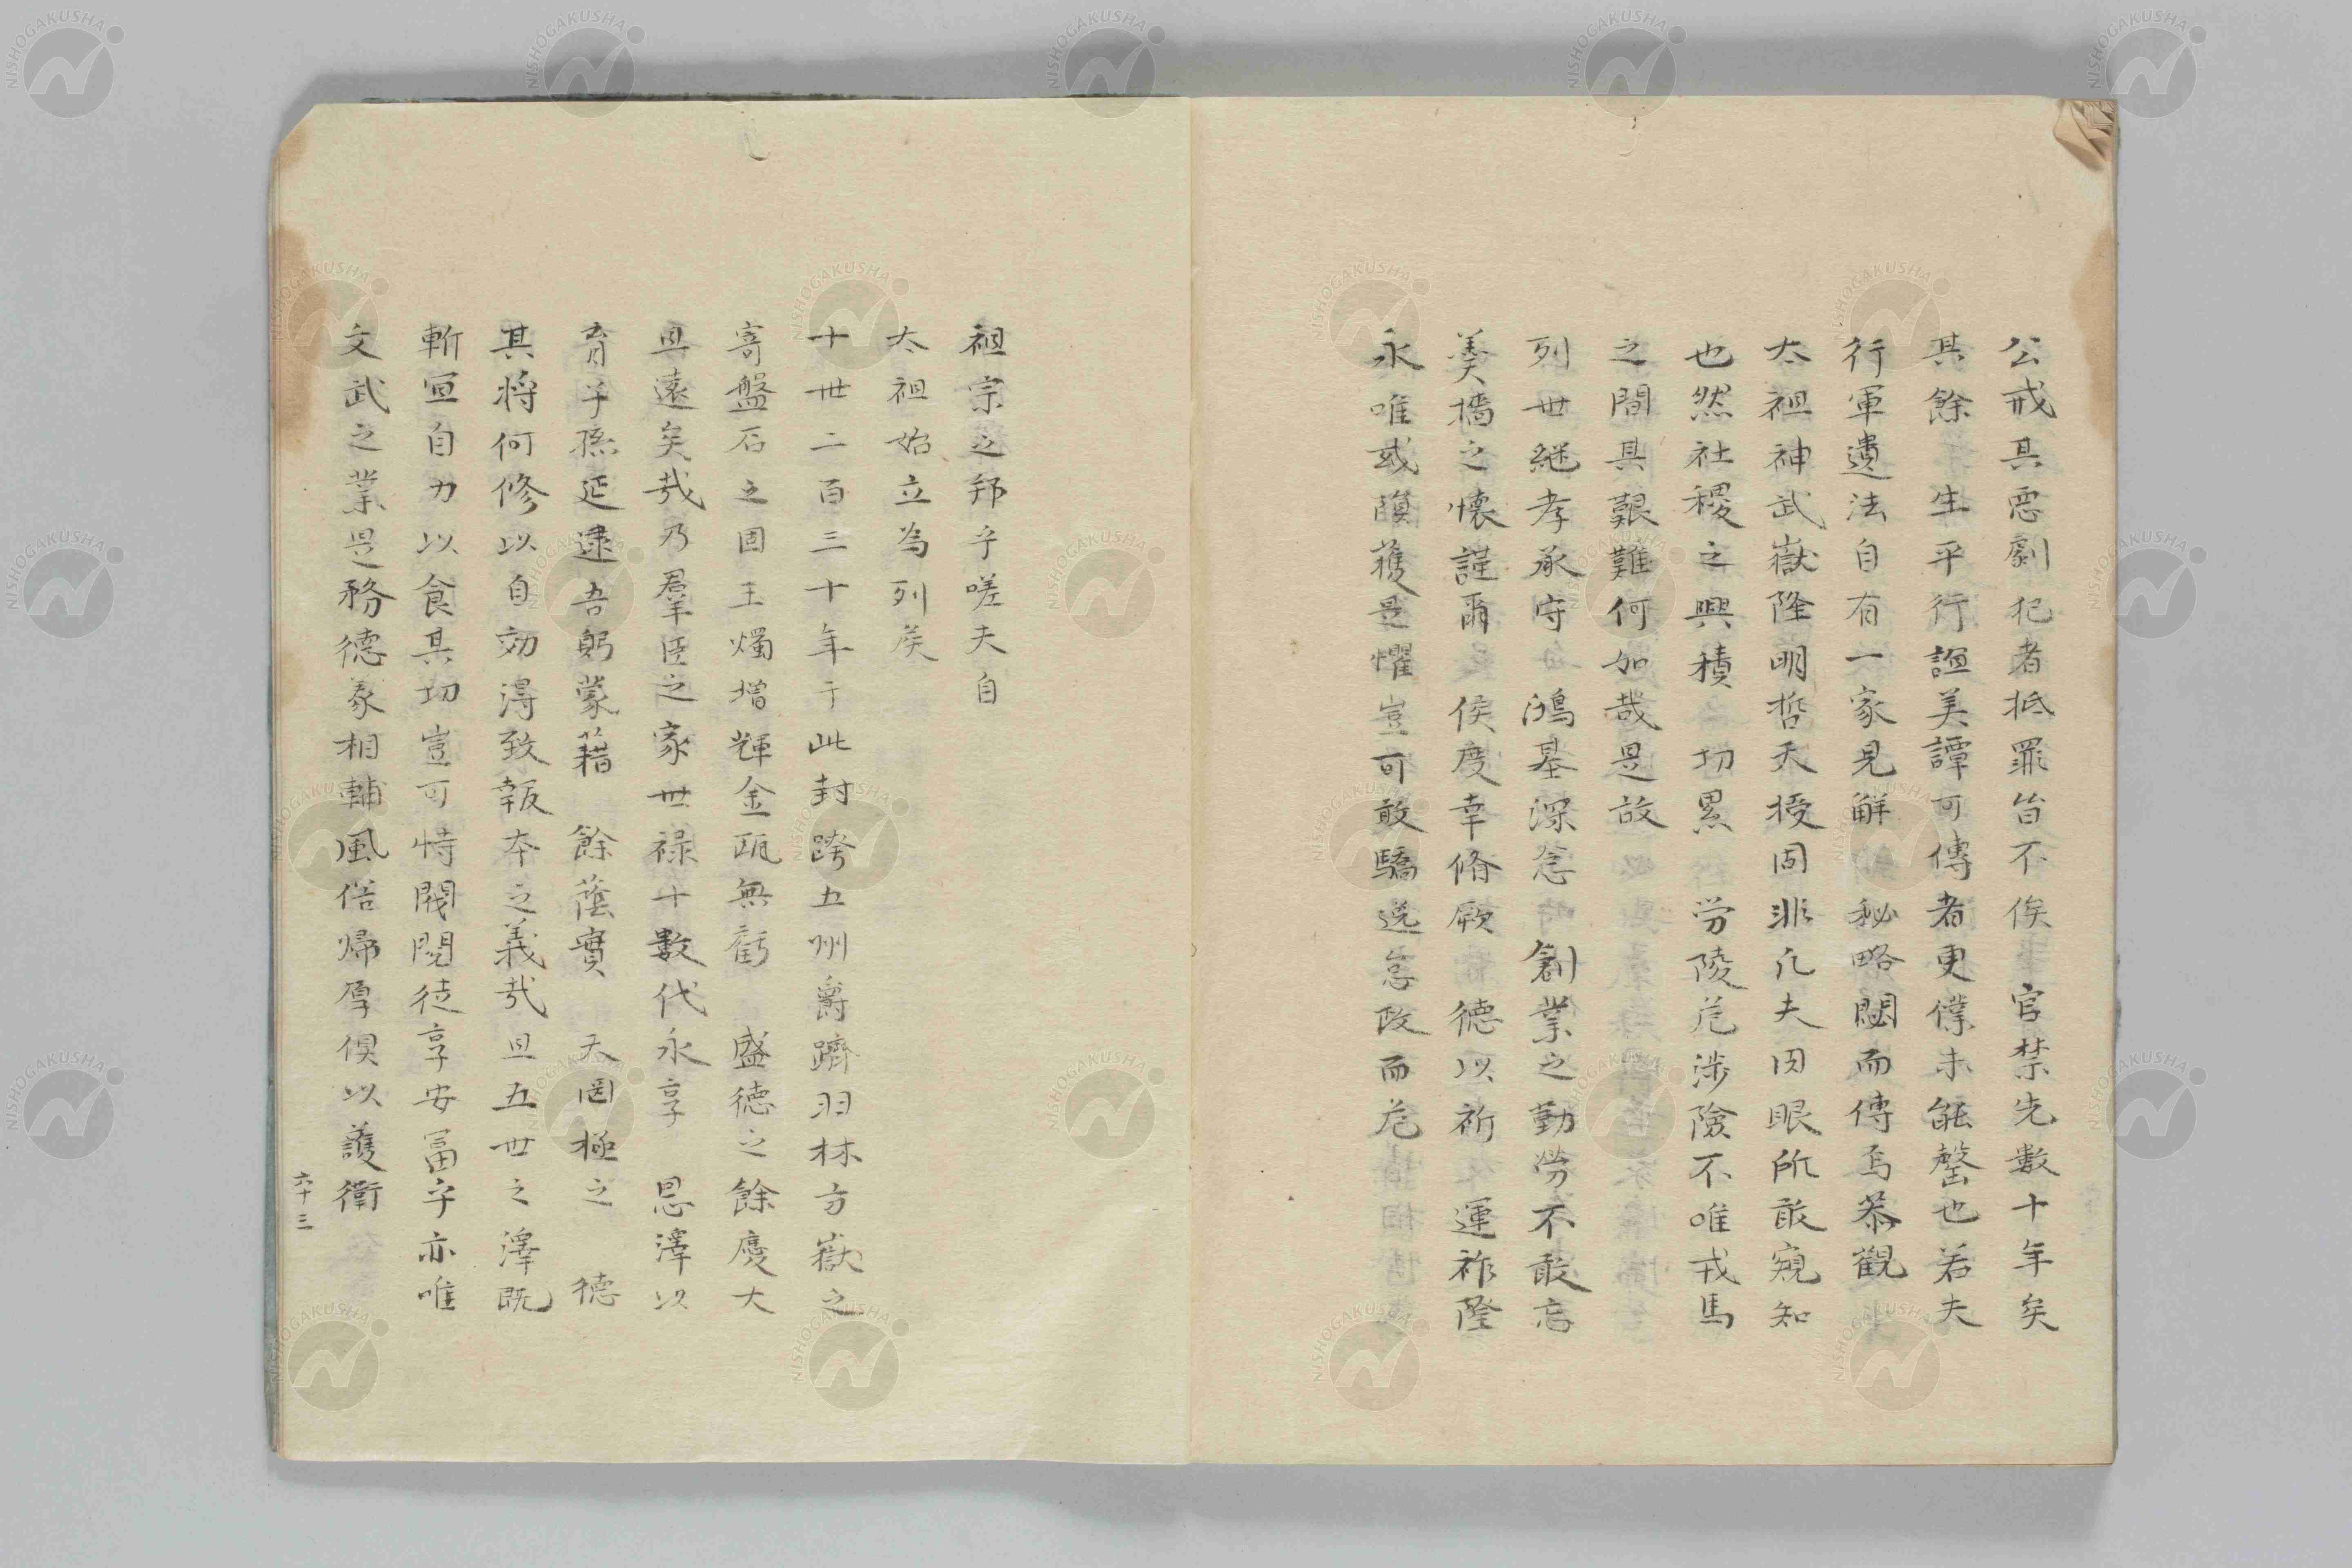 公戒其惡劇犯者抵罪皆不俟 官禁先數十年矣
其餘 生平行誼美譚可傳者更僕未能罄也若夫
行軍遺法自有一家見解 秘略閟而傳焉恭觀
太祖神武嶽隆明哲天授固非凡夫肉眼所敢窺知
也然社稷之興積 功累 勞陵危涉險不唯戎馬
之間其艱難何如哉是故
列世継孝承守 鴻基深念 創業之勤勞不敢忘
羹墻之懷謹爾 侯度幸脩厥 德以祈 運祚隆
永唯或隕穫是懼豈可敢驕逸怠政而危
祖宗之邦乎嗟夫自
太祖始立為列侯
十世二百三十年于此封跨五州爵躋羽林方嶽之
寄盤石之固玉燭增輝金甌無虧 盛德之餘慶大
且遠矣哉乃羣臣之家世禄十數代永享 恩澤以
育子孫延逮吾躬蒙藉 餘蔭實 天罔極之 德
其将何修以自効得致報本之義哉且五世之澤既
斬宣自力以食其功豈可恃閥閱徒享安冨乎亦唯
文武之業是務德義相輔風俗帰厚俱以護衛
六十三
NISHOGAKUSHA